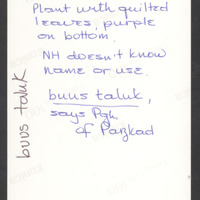 Plant with quilted
leaves, purple
on bottom.
NH doesn't know
name or use.
buus taluk,
says Pgh.
of Pazkad
buus taluk